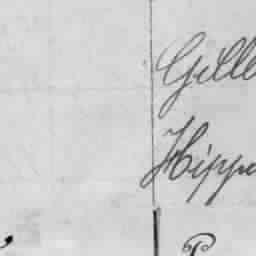 Gille
Hippo